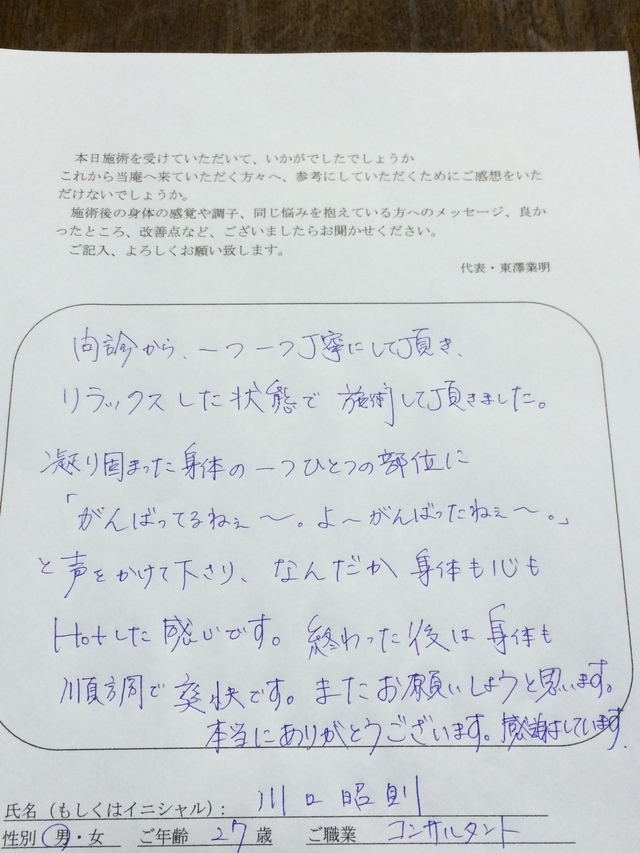 本日施術を受けていただいて、いかがでしたでしょうか
これから当庵へ来ていただく方々へ、参考にしていただくためにご感想をいた
だけないでしょうか。
施術後の身体の感覚や調子、同じ悩みを抱えている方へのメッセージ、良か
ったところ、改善点など、ございましたらお聞かせください。
ご記入、よろしくお願い致します。
代表・東澤業明
問診から、一つ一つ丁寧にして頂き、
リラックスした状態で施術して頂きました。
凝り固まった身体の一つひとつの部位に
「がんばってるねぇ〜。よ〜がんばったねぇ〜。」
と声をかけて下さり、なんだか身体も心も
Hotした感じです。終わった後は身体も
順調で爽快です。またお願いしようと思います。
本当にありがとうございます。感謝しています
氏名（もしくはイニシャル）： 川口昭則
性別 男・女 ご年齢 27 歳 ご職業 コンサルタント